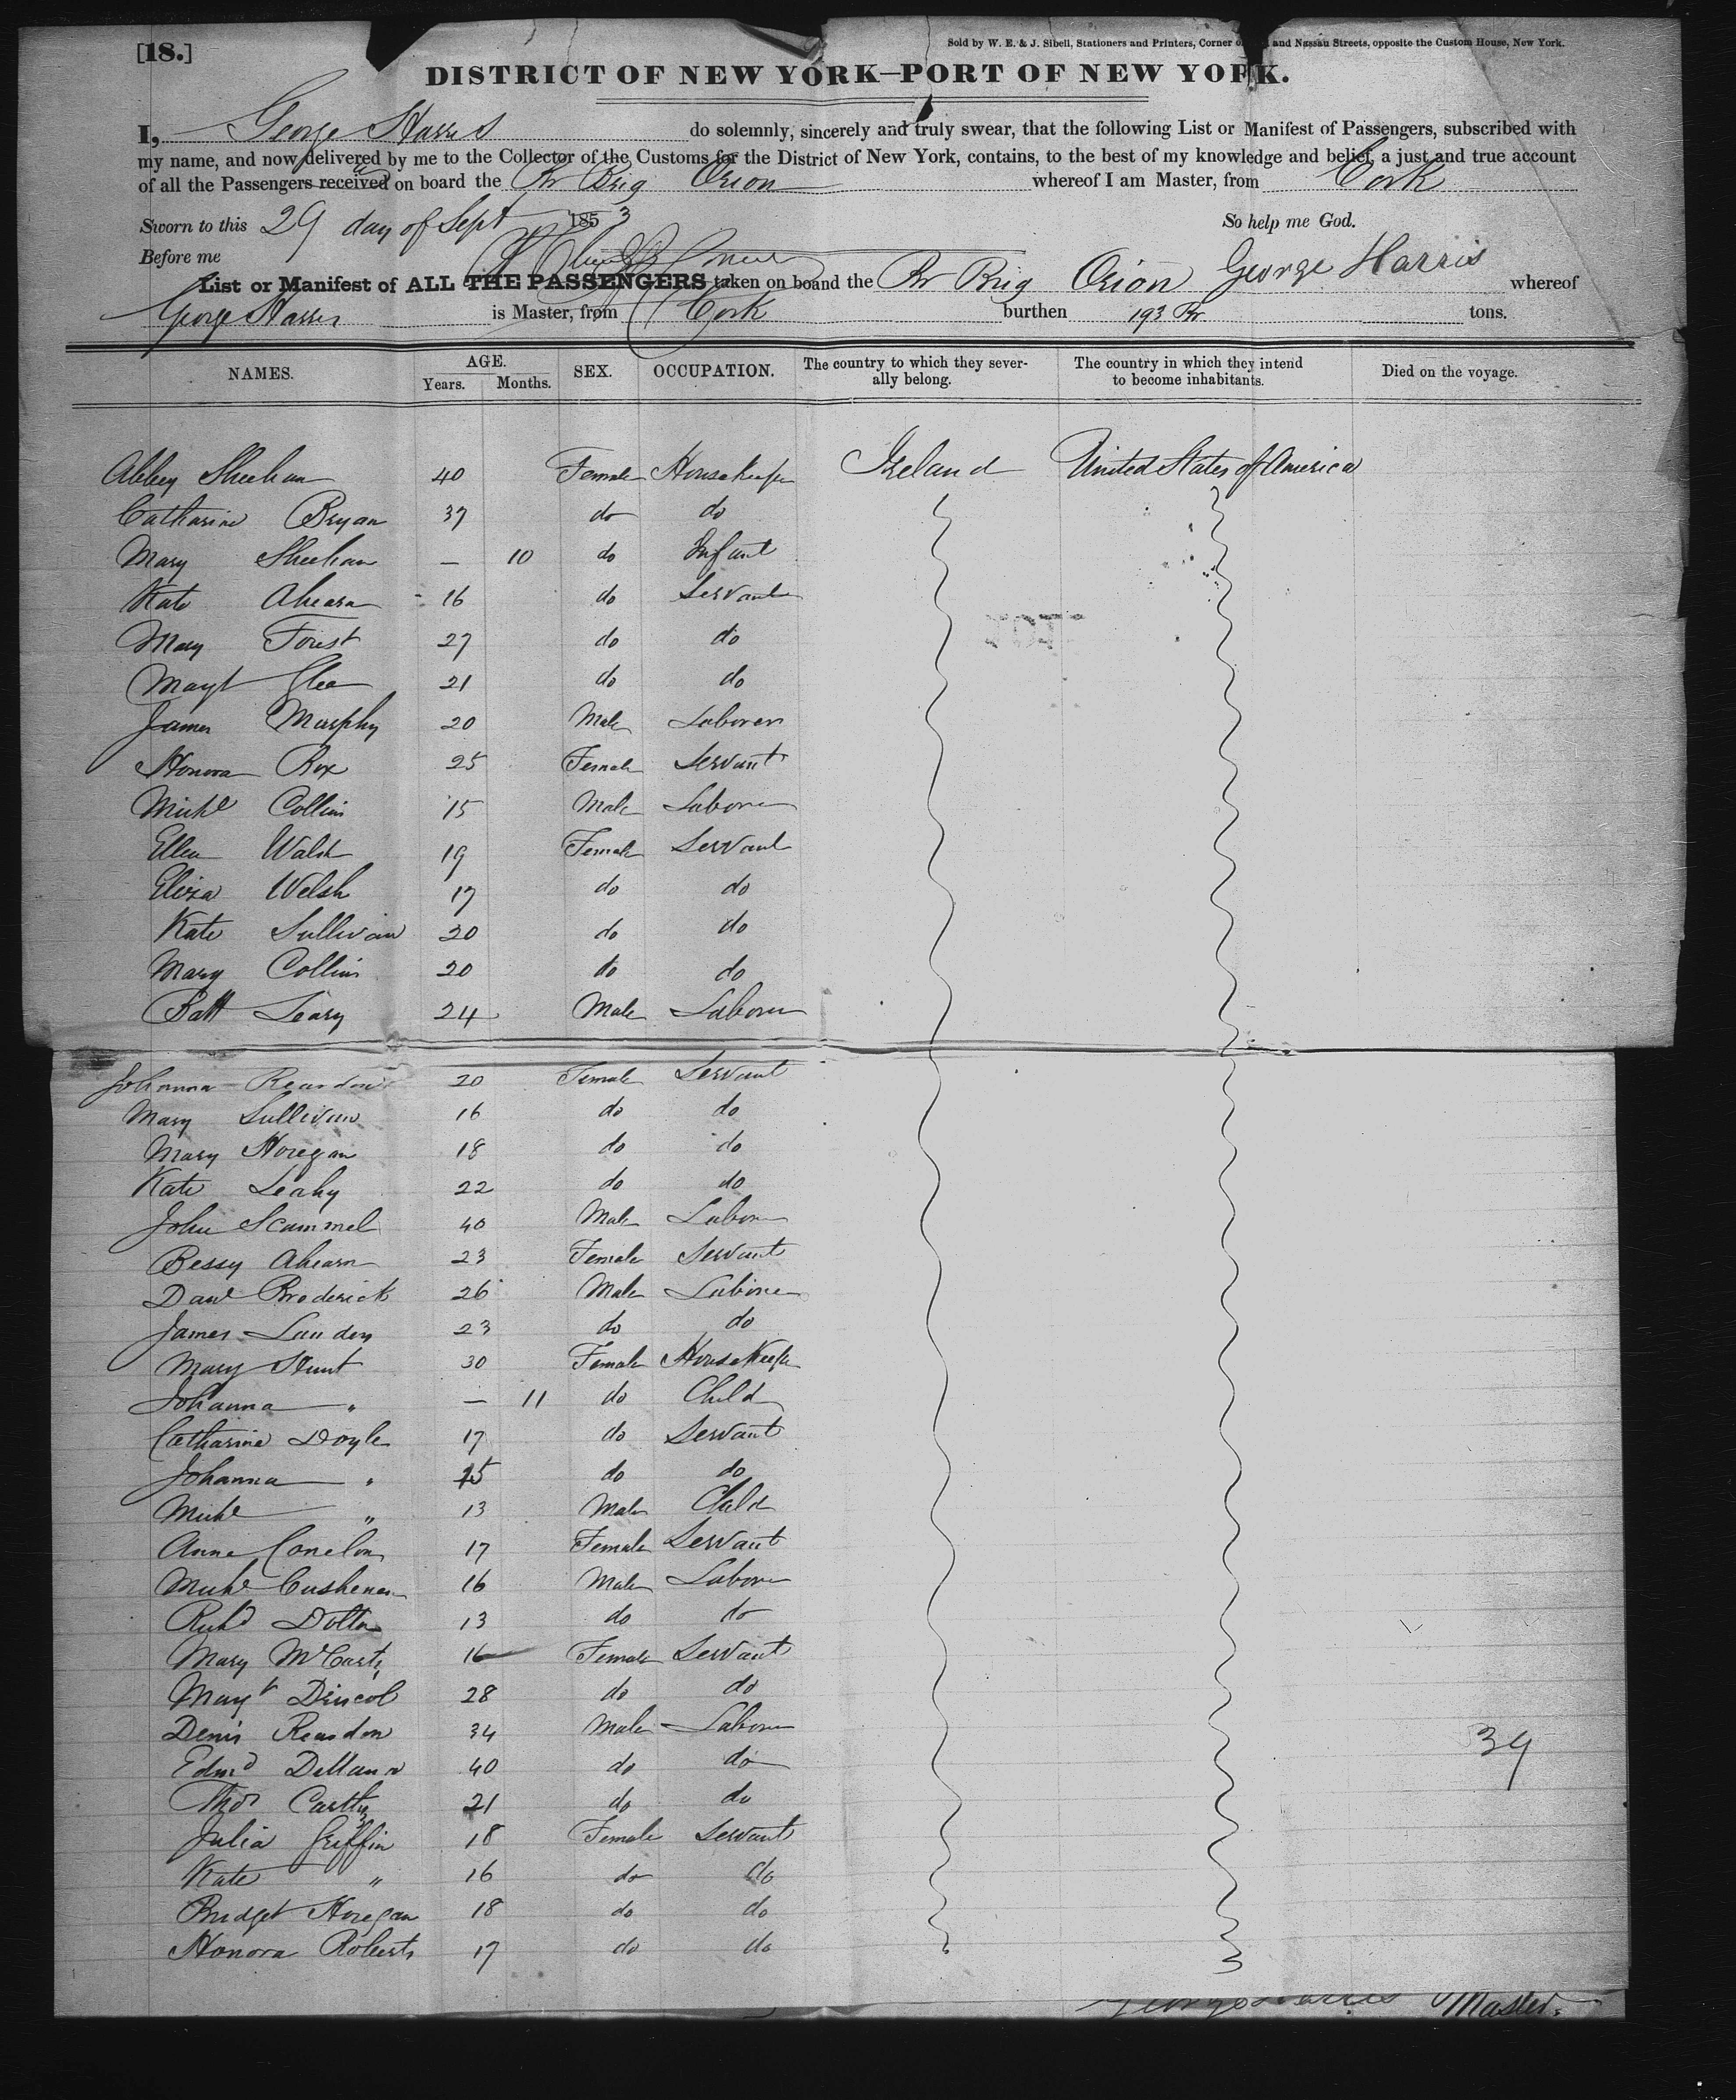 [18.]
Sold by W. E. & J. Sibell, Stationers and Printers, Corner and Nassau Streets, opposite the Custom House, New York.
DISTRICT OF NEW YORK—PORT OF NEW YORK.
I, George Harris do solemnly, sincerely and truly swear, that the following List or Manifest of Passengers, subscribed with
my name, and now delivered by me to the Collector of the Customs for the District of New York, contains, to the best of my knowledge and belief, a just and true account
of all the Passengers received on board the Br Brig Orion whereof I am Master, from Cork
Sworn to this 29 day of Sept 1853 So help me God.
Before me
George Harris
List or Manifest of ALL THE PASSENGERS taken on board the Br Brig Orion whereof
George Harris is Master, from Cork burthen 193 Br tons.
NAMES. AGE. Years. Months. SEX. OCCUPATION. The country to which they severally belong. The country in which they intend to become inhabitants. Died on the voyage.
Abbey Sheehan 40 Female Housekeeper Ireland United States of America
Catharine Bryan 37 do do
Mary Sheehan — 10 do Infant
Kate Ahearn 16 do Servant
Mary Forist 27 do do
Mayt 21 do do
James Murphy 20 Male Laborer
Honora Rox 25 Female Servant
Michl Collins 15 Male Laborer
Ellen Walsh 19 Female Servant
Eliza Welsh 17 do do
Kate Sullivan 20 do do
Mary Collins 20 do do
Batt Leary 24 Male Laborer
Johanna Reardon 20 Female Servant
Mary Sullivan 16 do do
Mary Horegan 18 do do
Kate Leahy 22 do do
John Scammel 40 Male Laborer
Bessy Ahearn 23 Female Servant
Danl Broderick 26 Male Laborer
James Landers 23 do do
Mary Hunt 30 Female Housekeeper
Johanna " — 11 do Child
Catharine Doyle 17 do Servant
Johanna " 15 do do
Michl " 13 Male Child
Anne Conelon 17 Female Servant
Michl 16 Male Laborer
Richd Dolton 13 do do
Mary McCarty 16 Female Servant
Mayt Driscol 28 do do
Denis Reardon 34 Male Laborer
Edmd 40 do do
Thos Carthy 21 do do
Julia Griffin 18 Female Servant
Kate " 16 do do
Bridget Horegan 18 do do
Honora Roberts 17 do do
39
George Harris Master.